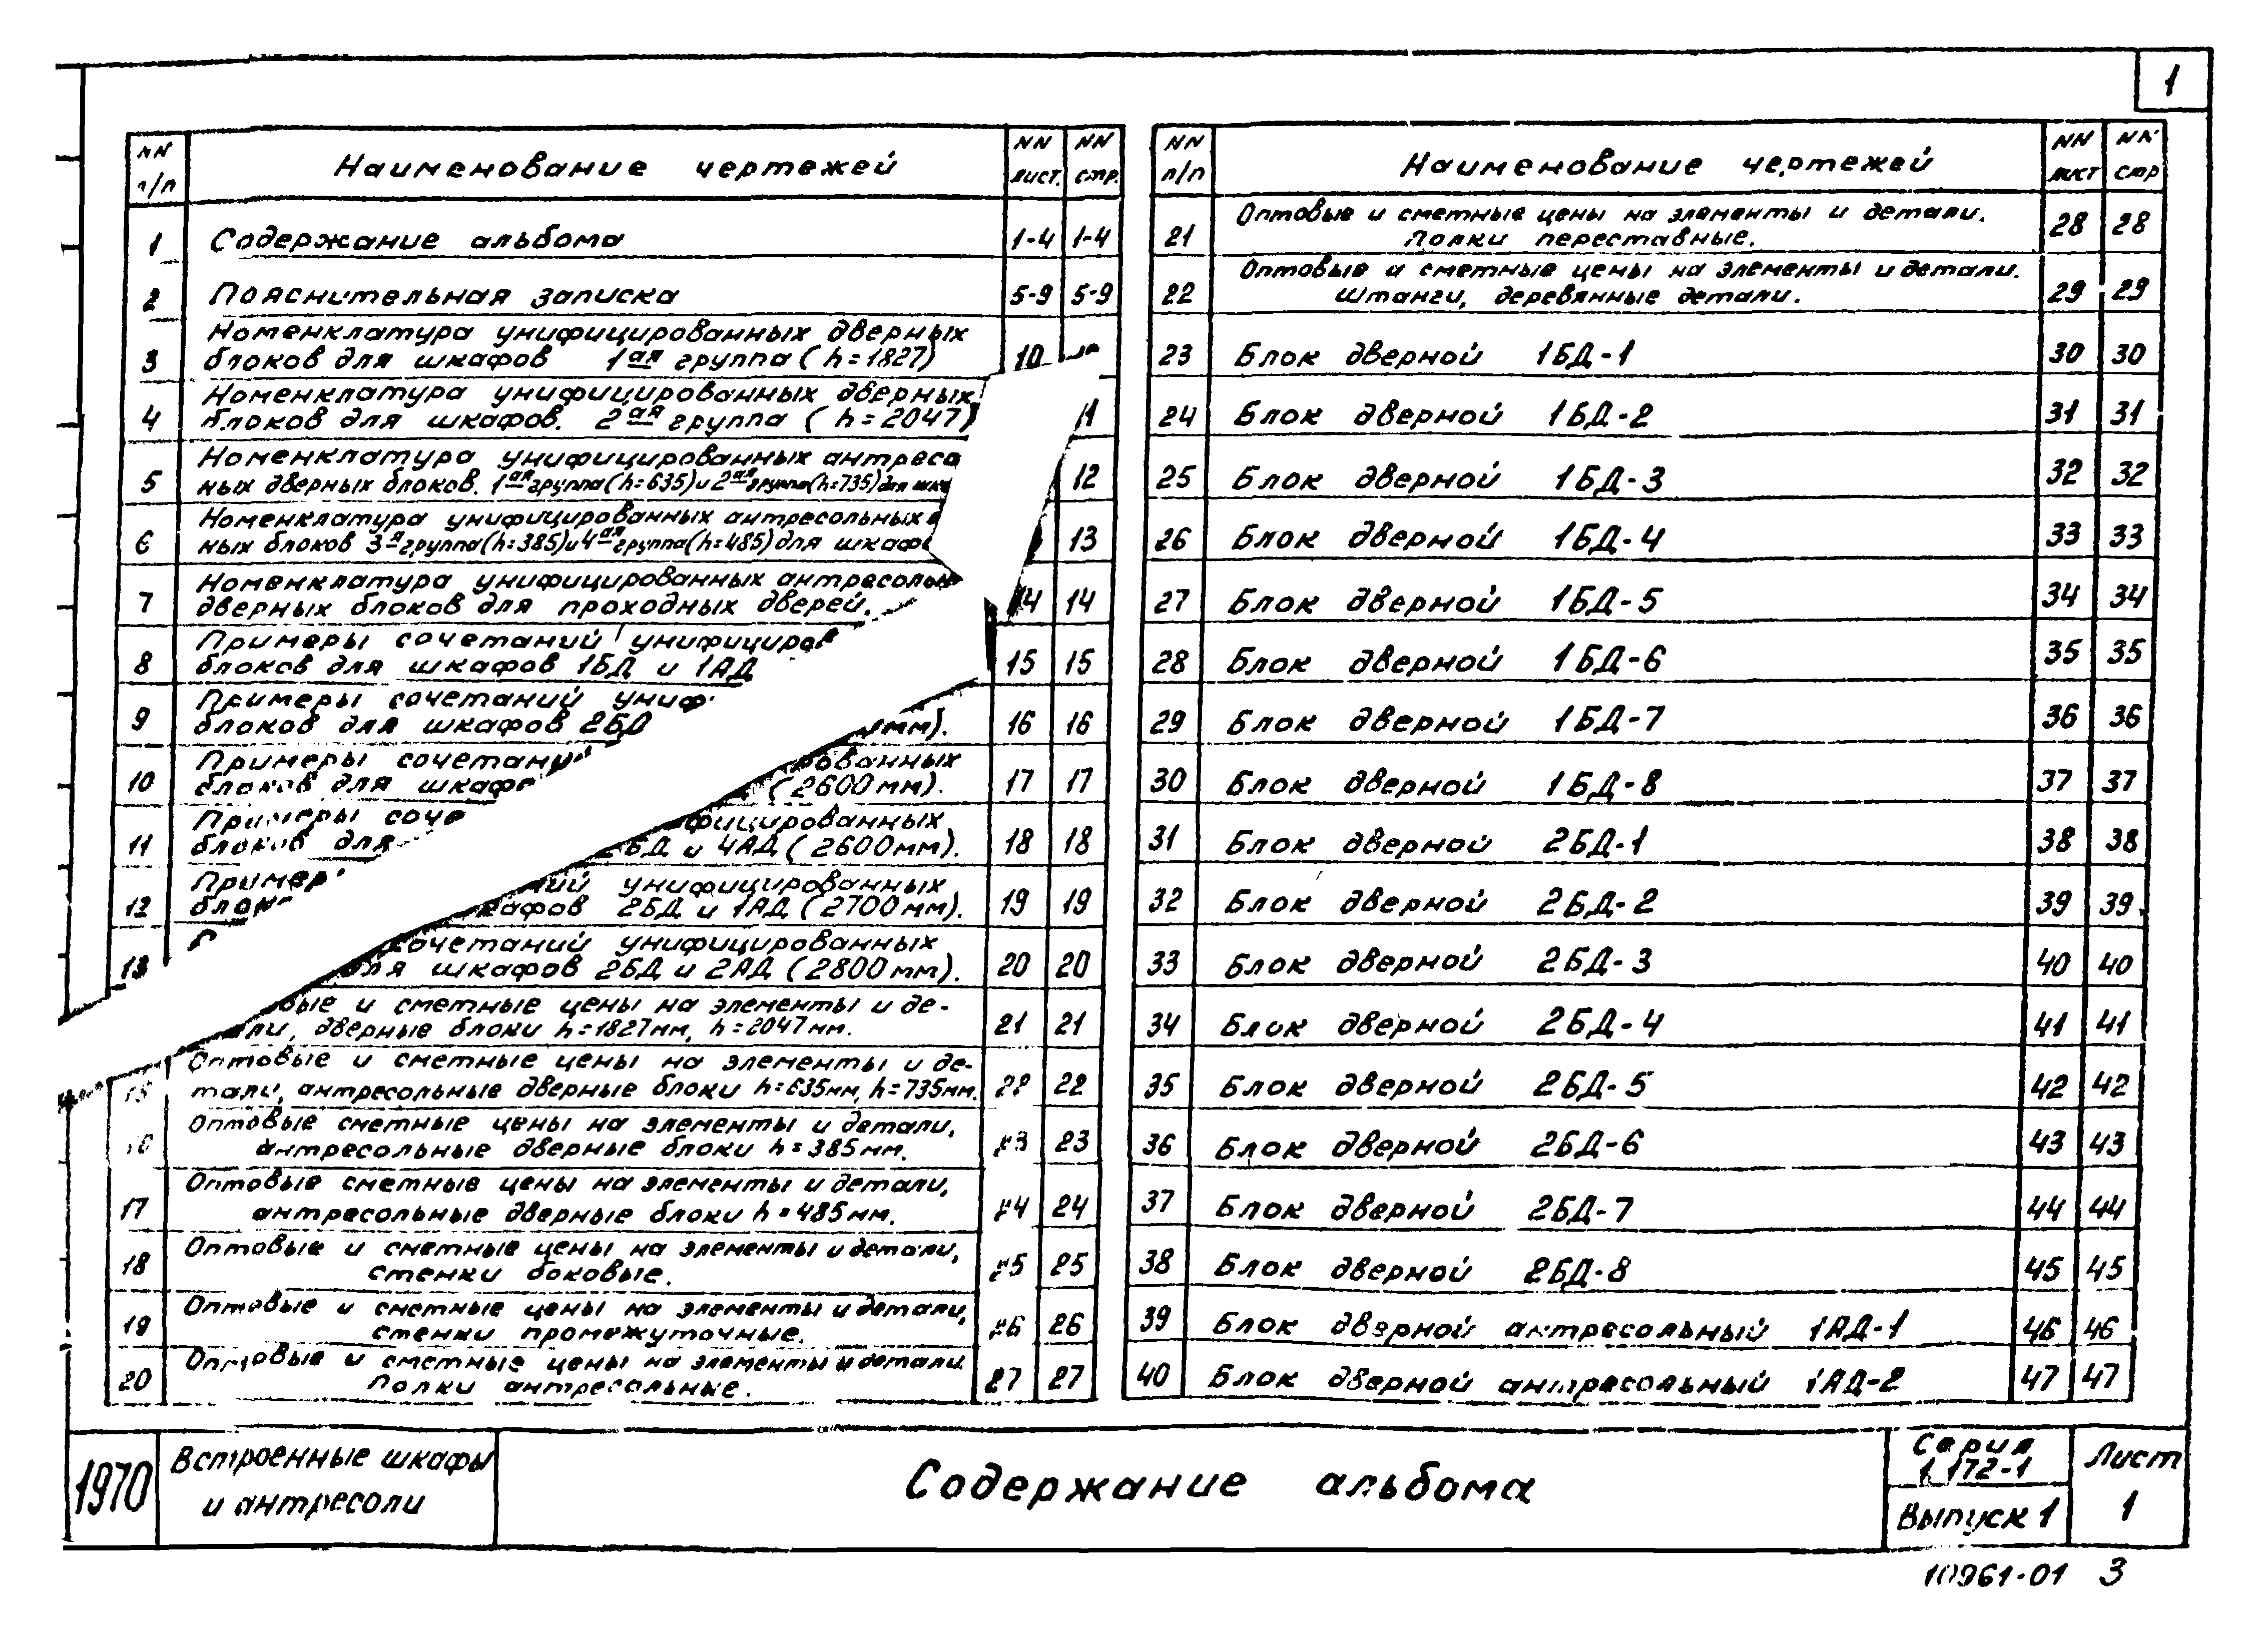 1
NN п/п
Наименование чертежей
NN лист.
NN стр.
1 Содержание альбома 1-4 1-4
2 Пояснительная записка 5-9 5-9
Номенклатура унифицированных дверных
3 блоков для шкафов 1ая группа (h=1827) 10
Номенклатура унифицированных дверных
4 блоков для шкафов. 2ая группа (h=2047) 11
Номенклатура унифицированных
5 ных дверных блоков. 1ая группа (h=635) и 2ая группа (h=735) для 12
Номенклатура унифицированных антресольных
6 ных блоков 3я группа (h=385) и 4ая группа (h=485) для 13
Номенклатура унифицированных
7 дверных блоков для проходных дверей. 14 14
Примеры сочетаний
8 блоков для шкафов 1БД и 1АД 15 15
Примеры сочетаний
9 блоков для шкафов 2БД мм). 16 16
Примеры
10 блоков для (2600мм). 17 17
Примеры
11 блоков для 2БД и 4АД (2600мм). 18 18
унифицированных
12 2БД и 1АД (2700мм). 19 19
сочетаний унифицированных
13 для шкафов 2БД и 2АД (2800мм). 20 20
и сметные цены на элементы и де-
дверные блоки h=1827мм, h=2047мм. 21 21
Оптовые и сметные цены на элементы и де-
15 тали, антресольные дверные блоки h=635мм, h=735мм. 22 22
Оптовые сметные цены на элементы и детали,
16 антресольные дверные блоки h=385мм. 23 23
Оптовые сметные цены на элементы и детали,
17 антресольные дверные блоки h=485мм. 24 24
Оптовые и сметные цены на элементы и детали,
18 стенки боковые. 25 25
Оптовые и сметные цены на элементы и детали,
19 стенки промежуточные. 26 26
Оптовые и сметные цены на элементы и детали.
20 Полки антресольные. 27 27
NN п/п
Наименование чертежей
NN лист
NN стр
Оптовые и сметные цены на элементы и детали.
21 Полки переставные. 28 28
Оптовые и сметные цены на элементы и детали.
22 Штанги, деревянные детали. 29 29
23 Блок дверной 1БД-1 30 30
24 Блок дверной 1БД-2 31 31
25 Блок дверной 1БД-3 32 32
26 Блок дверной 1БД-4 33 33
27 Блок дверной 1БД-5 34 34
28 Блок дверной 1БД-6 35 35
29 Блок дверной 1БД-7 36 36
30 Блок дверной 1БД-8 37 37
31 Блок дверной 2БД-1 38 38
32 Блок дверной 2БД-2 39 39
33 Блок дверной 2БД-3 40 40
34 Блок дверной 2БД-4 41 41
35 Блок дверной 2БД-5 42 42
36 Блок дверной 2БД-6 43 43
37 Блок дверной 2БД-7 44 44
38 Блок дверной 2БД-8 45 45
39 Блок дверной антресольный 1АД-1 46 46
40 Блок дверной антресольный 1АД-2 47 47
1970
Встроенные шкафы
и антресоли
Содержание альбома
Серия
1.172-1
Выпуск 1
Лист
1
10961-01 3